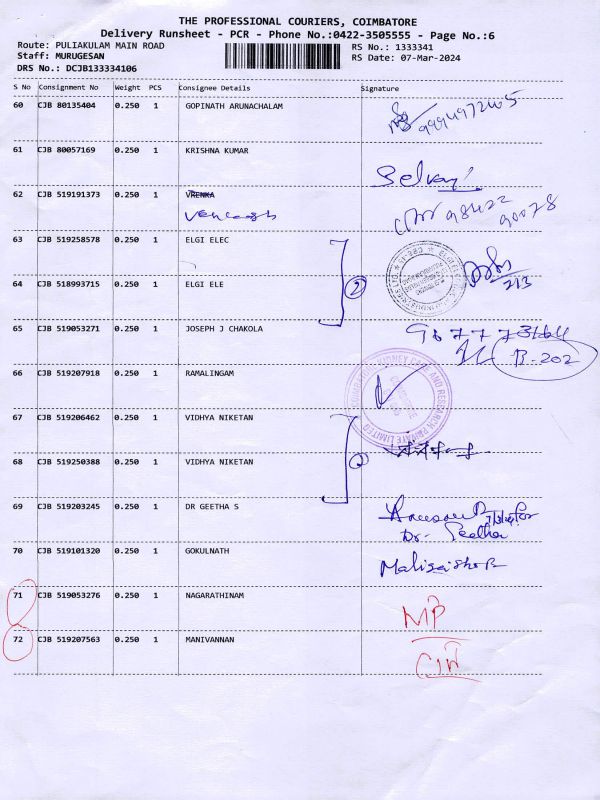 THE PROFESSIONAL COURIERS, COIMBATORE
Delivery Runsheet - PCR - Phone No.:0422-3505555 - Page No.:6
Route: PULIAKULAM MAIN ROAD
RS No.: 1333341
Staff: MURUGESAN
RS Date: 07-Mar-2024
DRS No.: DCJB133334106
S No Consignment No Weight PCS Consignee Details Signature
60 CJB 80135404 0.250 1 GOPINATH ARUNACHALAM
61 CJB 80057169 0.250 1 KRISHNA KUMAR
62 CJB 519191373 0.250 1 VRENKA
63 CJB 519258578 0.250 1 ELGI ELEC
2
64 CJB 518993715 0.250 1 ELGI ELE
65 CJB 519053271 0.250 1 JOSEPH J CHAKOLA
B-202
66 CJB 519207918 0.250 1 RAMALINGAM
67 CJB 519206462 0.250 1 VIDHYA NIKETAN
68 CJB 519250388 0.250 1 VIDHYA NIKETAN
69 CJB 519203245 0.250 1 DR GEETHA S
Dr. Geetha
70 CJB 519101320 0.250 1 GOKULNATH
71 CJB 519053276 0.250 1 NAGARATHINAM
72 CJB 519207563 0.250 1 MANIVANNAN